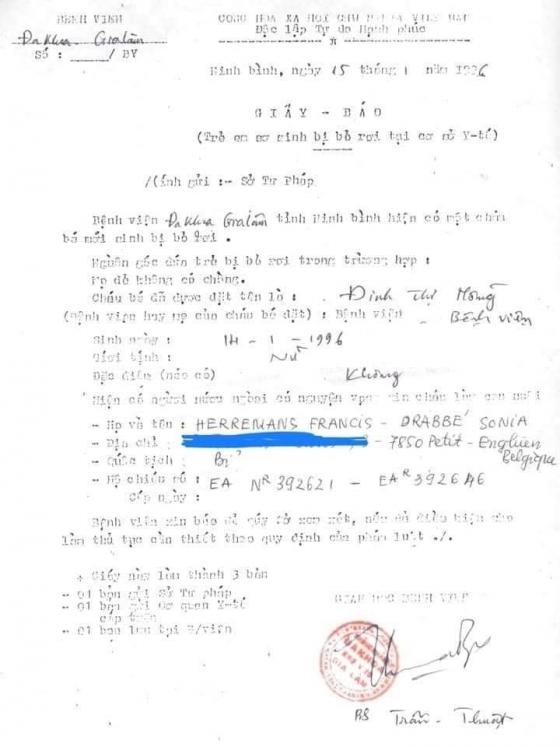 BỆNH VIỆN
CỘNG HÒA XÃ HỘI CHỦ NGHĨA VIỆT NAM
Đa khoa Gralâm
Độc lập Tự do Hạnh phúc
Số : /BV
Ninh bình, ngày 15 tháng 1 năm 1996
GIẤY - BÁO
(Trẻ em sơ sinh bị bỏ rơi tại cơ sở Y-tế)
Kính gửi :- Sở Tư Pháp
Bệnh viện Đa khoa Gralâm tỉnh Ninh bình hiện có một cháu
bé mới sinh bị bỏ rơi .
Nguồn gốc đứa trẻ bị bỏ rơi trong trường hợp :
Mẹ đẻ không có chồng.
Cháu bé đã được đặt tên là : Đinh Thị Hồng
(Bệnh viện hay mẹ của cháu bé đặt) : Bệnh viện Bệnh viện
Sinh ngày : 14 - 1 - 1996
Giới tính : Nữ
Đặc điểm (nếu có) Không
Hiện có người nước ngoài có nguyện vọng xin cháu làm con nuôi
- Họ và tên : HERREMANS FRANCIS - DRABBÉ SONIA
- Địa chỉ : - 7850 Petit - Enghien
Belgique
- Quốc tịch : Bỉ
- Hộ chiếu số : EA NR 392621 - EA R 392646
Cấp ngày :
Bệnh viện xin báo để quý Sở xem xét, nếu đủ điều kiện cho
làm thủ tục cần thiết theo quy định của pháp luật ./.
* Giấy này làm thành 3 bản
- 01 bản gửi Sở Tư pháp
- 01 bản gửi Cơ quan Y-tế
cấp trên
- 01 bản lưu tại B/viện
GIÁM ĐỐC BỆNH VIỆN
ĐA KHOA
KHU VỰC
GIA LÂM
BS Trần - Thuật